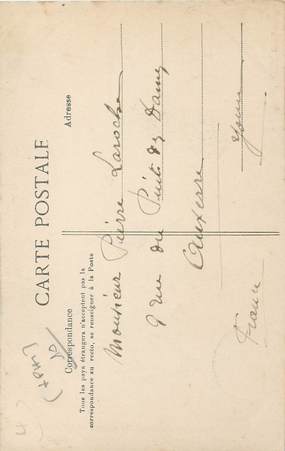 CARTE POSTALE
Correspondance
Tous les pays étrangers n'acceptent pas la
correspondance au recto, se renseigner à la Poste
Adresse
Monsieur Pierre Laroche
9 rue du Puits des Dames
Auxerre
Yonne
France